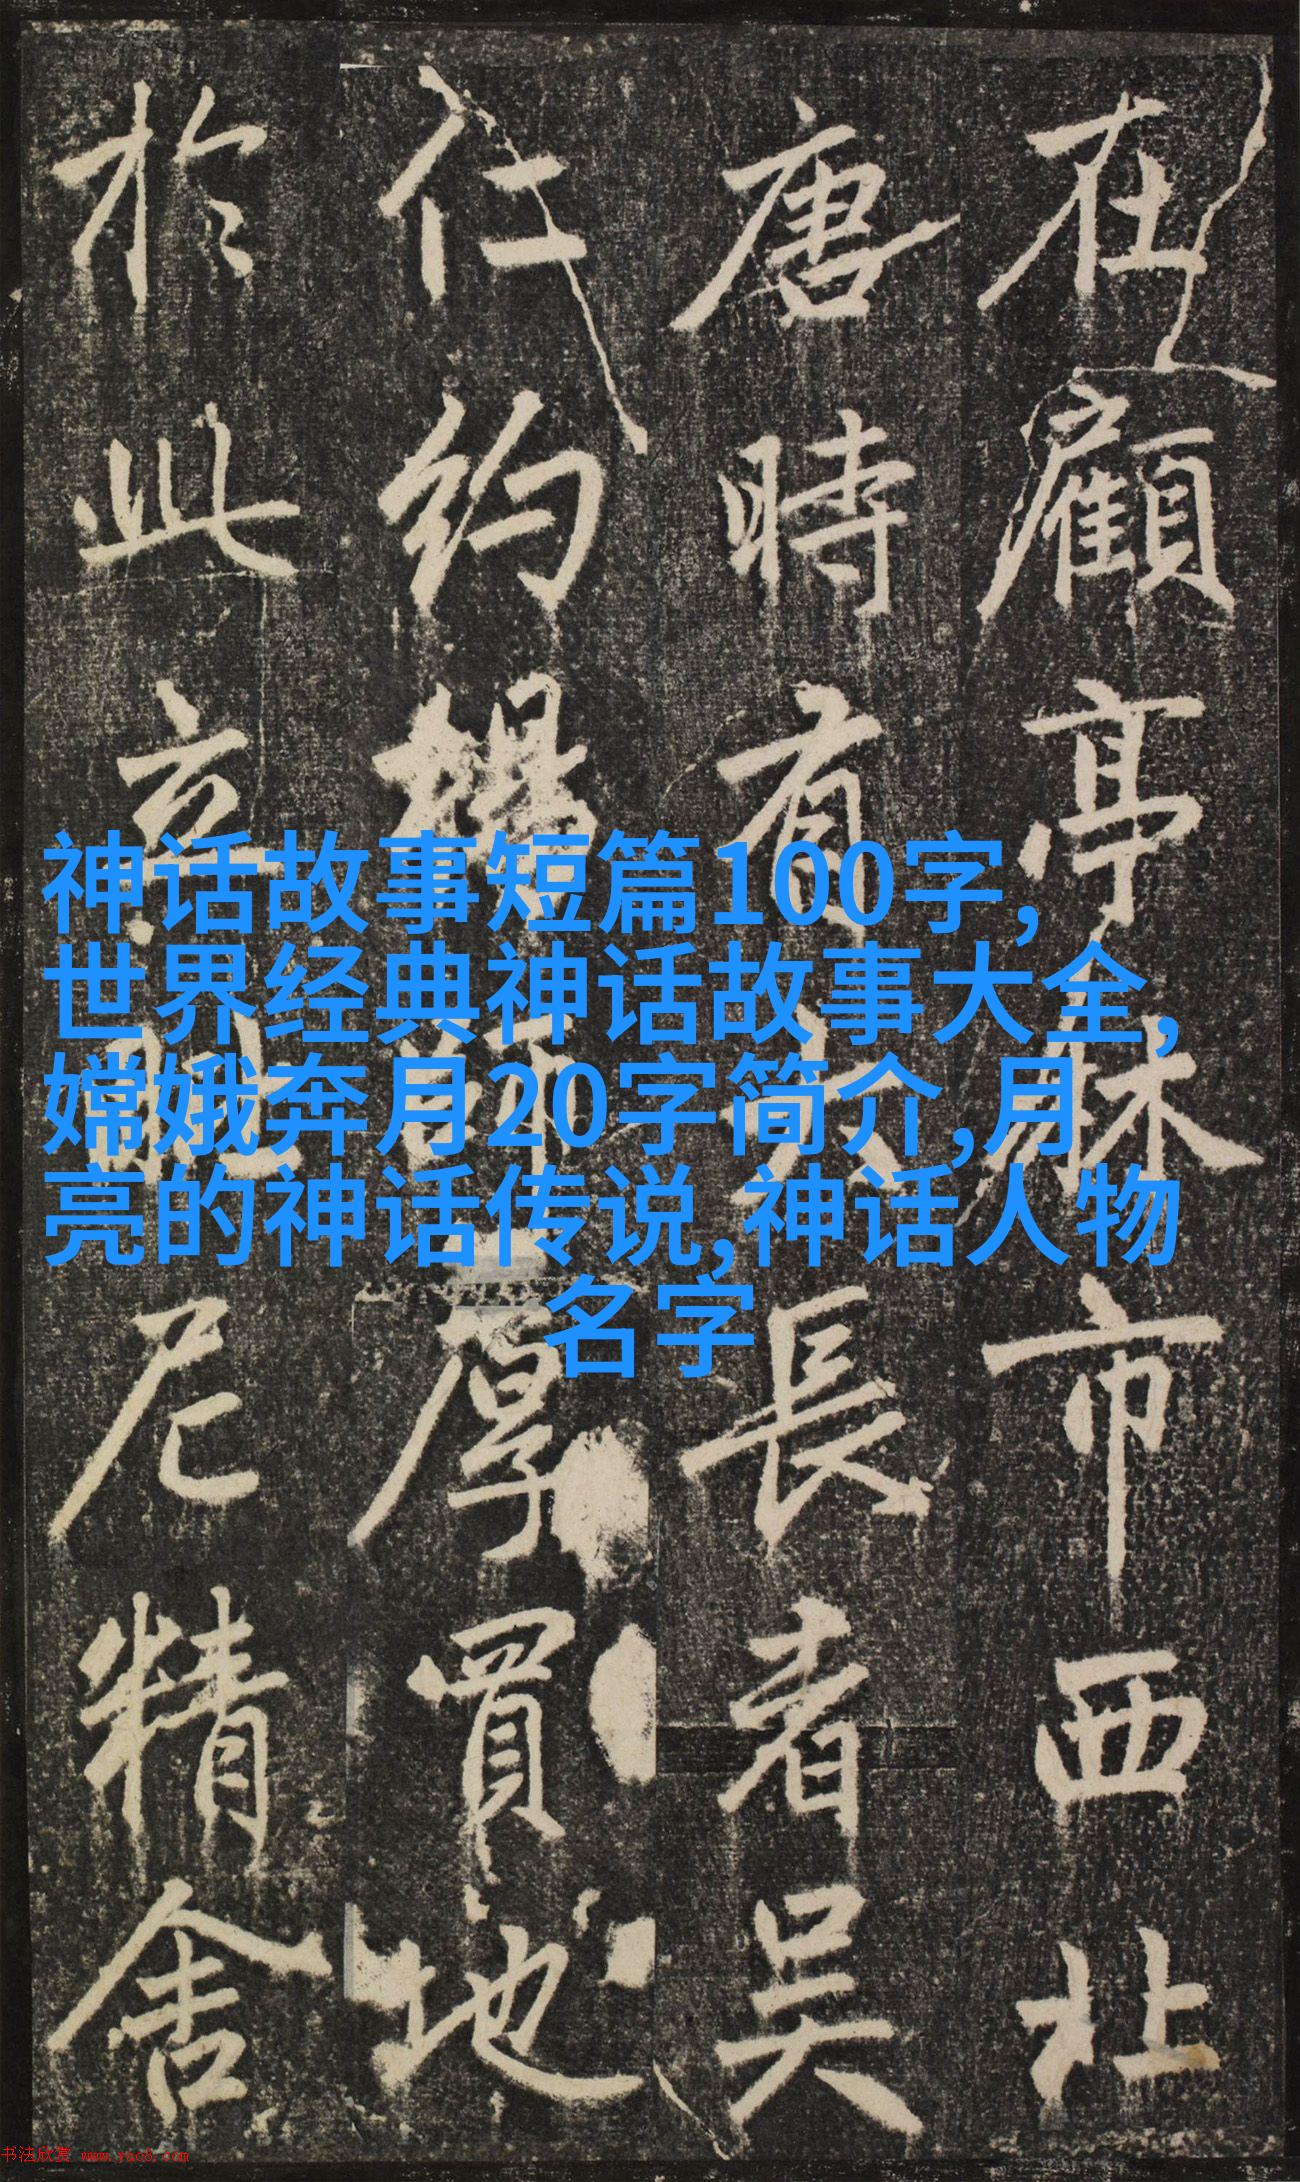 在顧亭林市西北
唐時有長者吳
仁約厚買地
於此尼精舍
神话故事短篇100字,
世界经典神话故事大全,
嫦娥奔月20字简介,月
亮的神话传说,神话人物
名字
书法欣赏 www.yac8.com